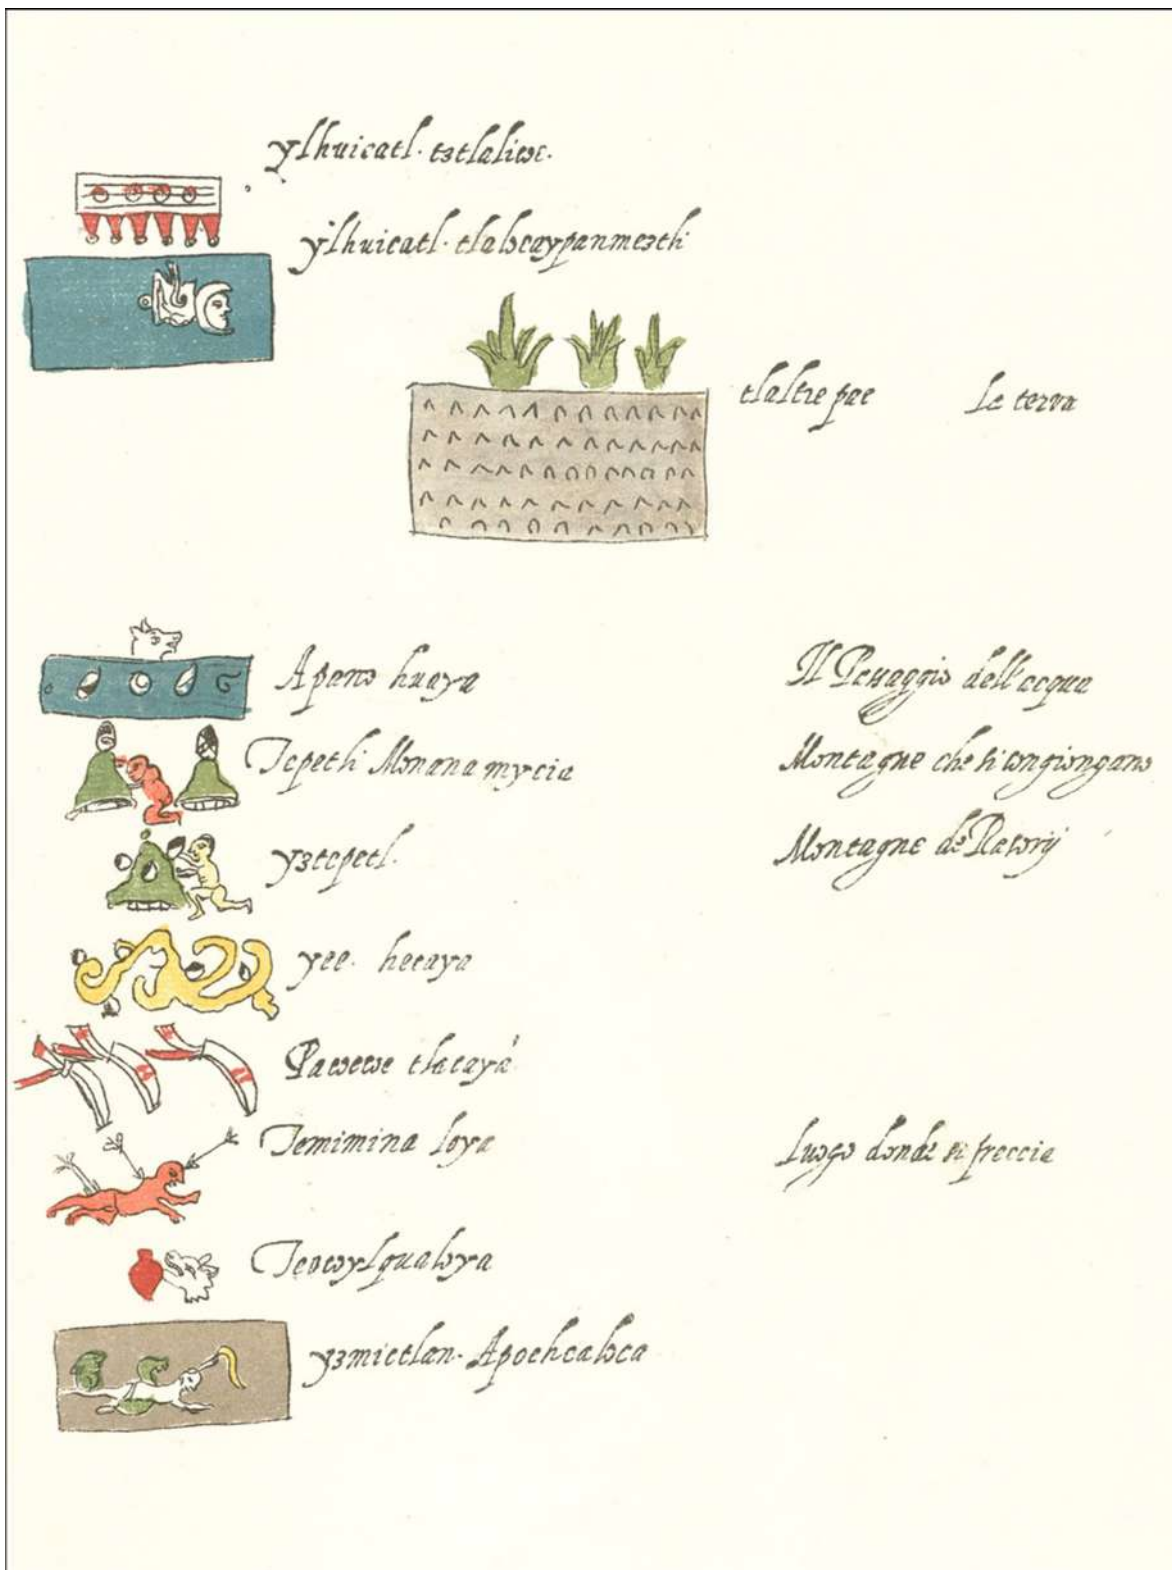 ylhuicatl. tztlalicoc.
ylhuicatl. tlalocaypanmeztli
tlalticpac La terra
Apano huaya Il Passaggio dell'acqua
Tepetli Monanamycia Montagne che si congiongano
yztepetl. Montagne de Rasorij
yee. hecaya
Pacoecoe tlacaya
Temimina loya Luogo donde si freccia
Teocoylqualoya
yzmictlan. Apochcaloca